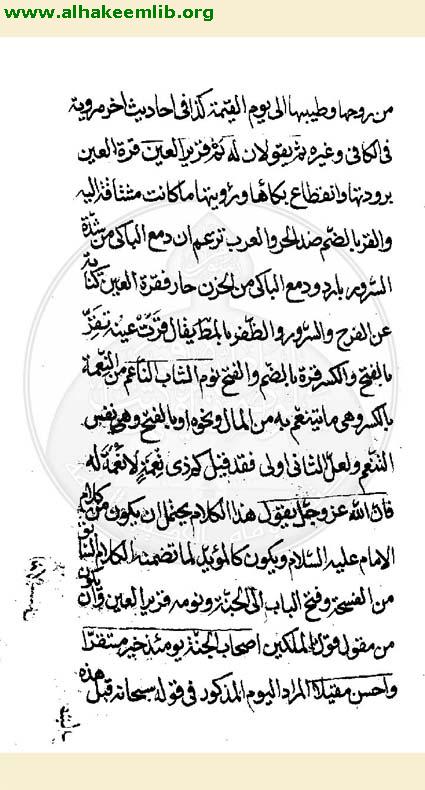 www.alhakeemlib.org
من روحها وطيبها الى يوم القيمة كذا فى احاديث اخر مروية
فى الكافى وغيره ثم يقولان له نم قرير العين قرة العين
برودتها وانقطاع بكائها ورؤيتها ما كانت مشتاقة اليه
والقر بالضم ضد الحر والعرب تزعم ان دمع الباكى من شدة
السرور بارد ودمع الباكى من الحزن حار فقرة العين كناية
عن الفرح والسرور والظفر بالمط يقال قرت عينه تقر
بالفتح والكسر قرة بالضم والفتح نوم الشاب الناعم من النعمة
بالكسر وهى ما يتنعم به من المال ونحوه او بالفتح وهى نفس
التنعم ولعل الثانى اولى فقد قيل كم ذى نعمة لا نعمة له
فان الله عز وجل يقول هذا الكلام يحتمل ان يكون من كلام
الامام عليه السلام ويكون كالمؤيد لما تضمنه الكلام
من الفسحة وفتح الباب الى الجنة ونومه قرير العين وان يكون
من مقول قول الملكين اصحاب الجنة يومئذ خير مستقرا
واحسن مقيلا المراد اليوم المذكور فى قوله سبحانه قبل هذه